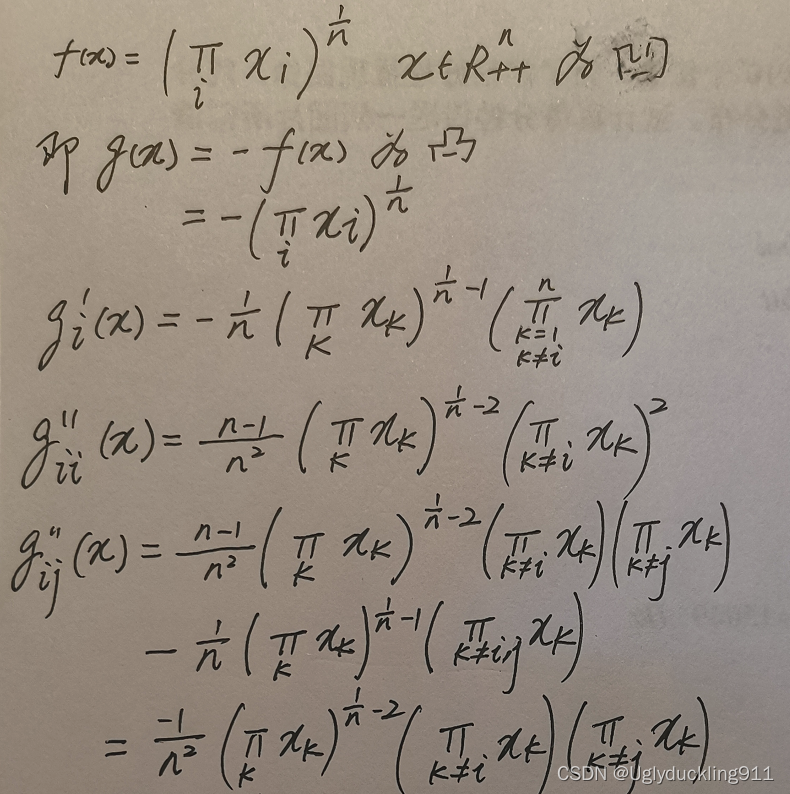 f(x) = (∏_i x_i)^{1/n}  x∈R^n_{++} 为凹
即 g(x) = -f(x) 为凸
= -(∏_i x_i)^{1/n}
g'_i(x) = -1/n (∏_K x_K)^{1/n -1} (∏^n_{K=1, K≠i} x_K)
g''_{ii}(x) = (n-1)/n² (∏_K x_K)^{1/n -2} (∏_{K≠i} x_K)²
g''_{ij}(x) = (n-1)/n² (∏_K x_K)^{1/n -2} (∏_{K≠i} x_K)(∏_{K≠j} x_K)
- 1/n (∏_K x_K)^{1/n -1} (∏_{K≠i,j} x_K)
= -1/n² (∏_K x_K)^{1/n -2} (∏_{K≠i} x_K)(∏_{K≠j} x_K)
CSDN @Uglyduckling911